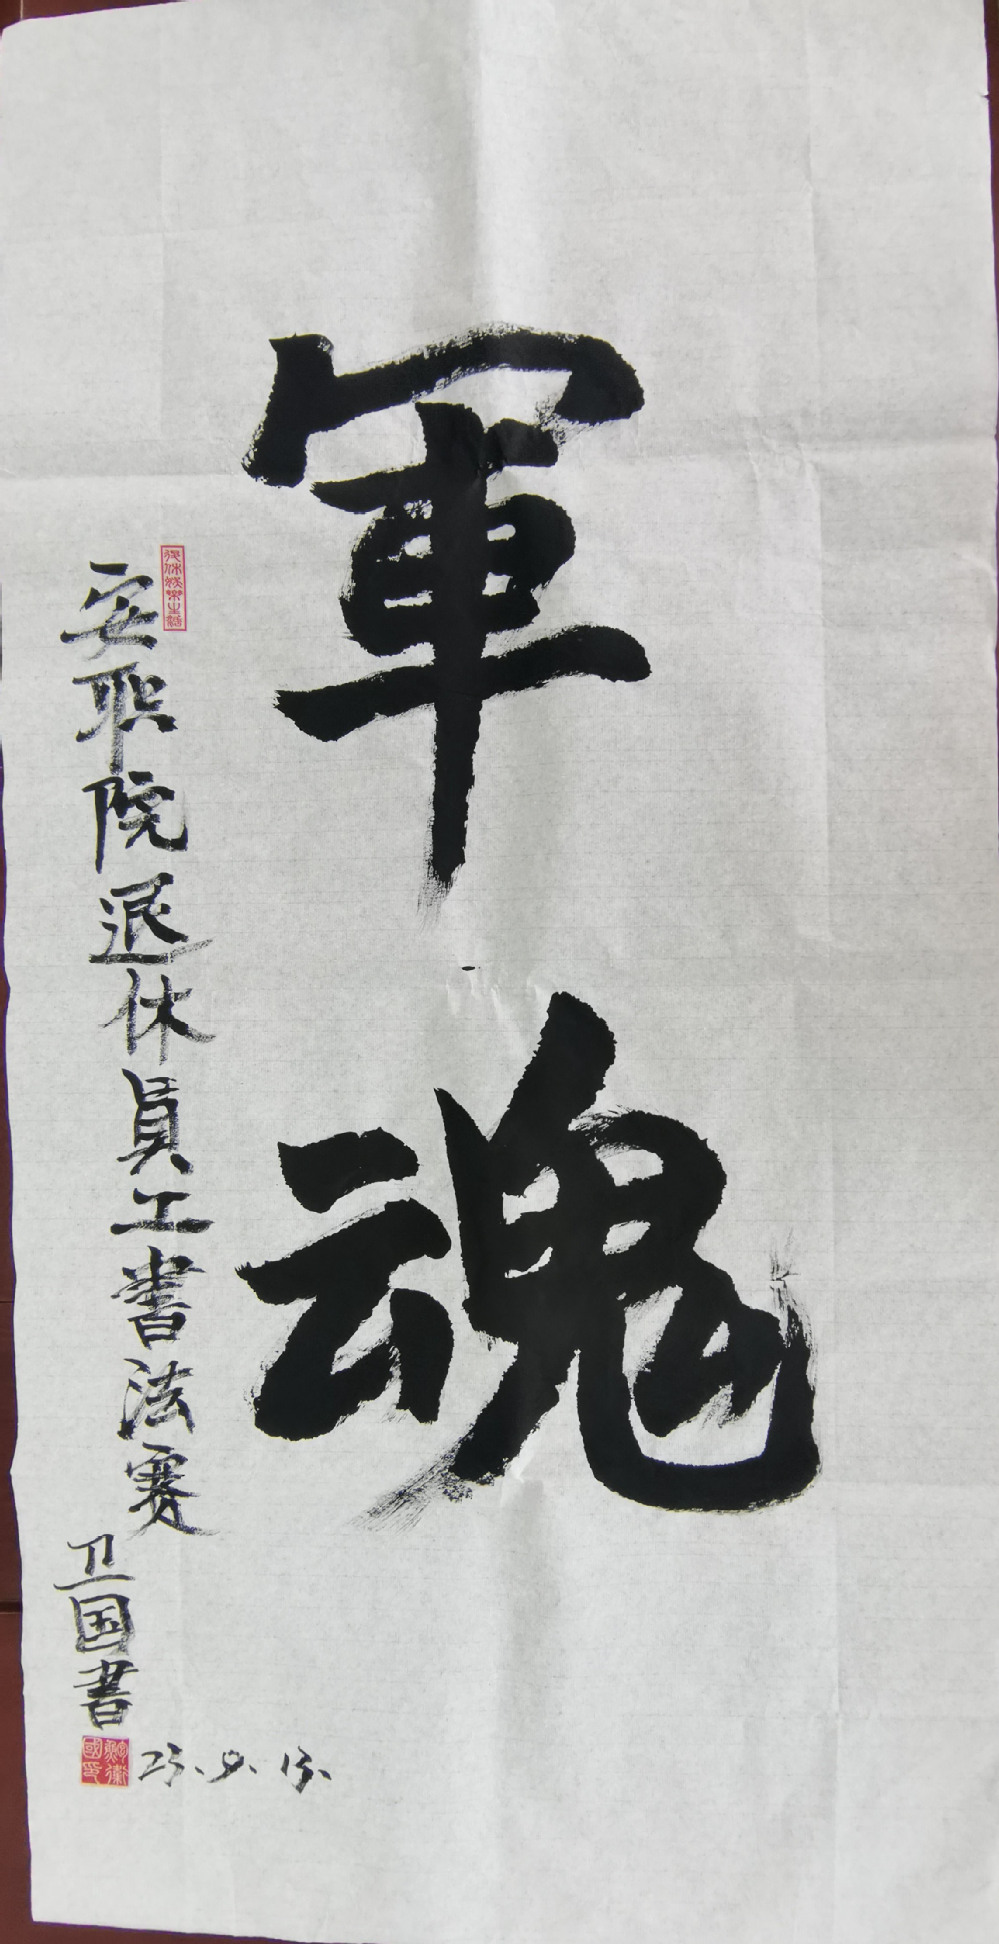 軍魂
安职院退休員工書法赛
卫国書
25.9.15.